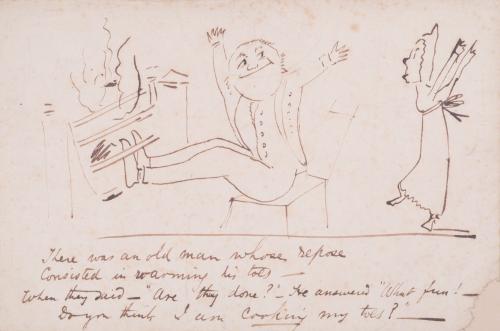 There was an old man whose repose
Consisted in warming his toes —
When they said — "Are they done?" — He answered "What fun! —
Do you think I am cooking my toes?" —